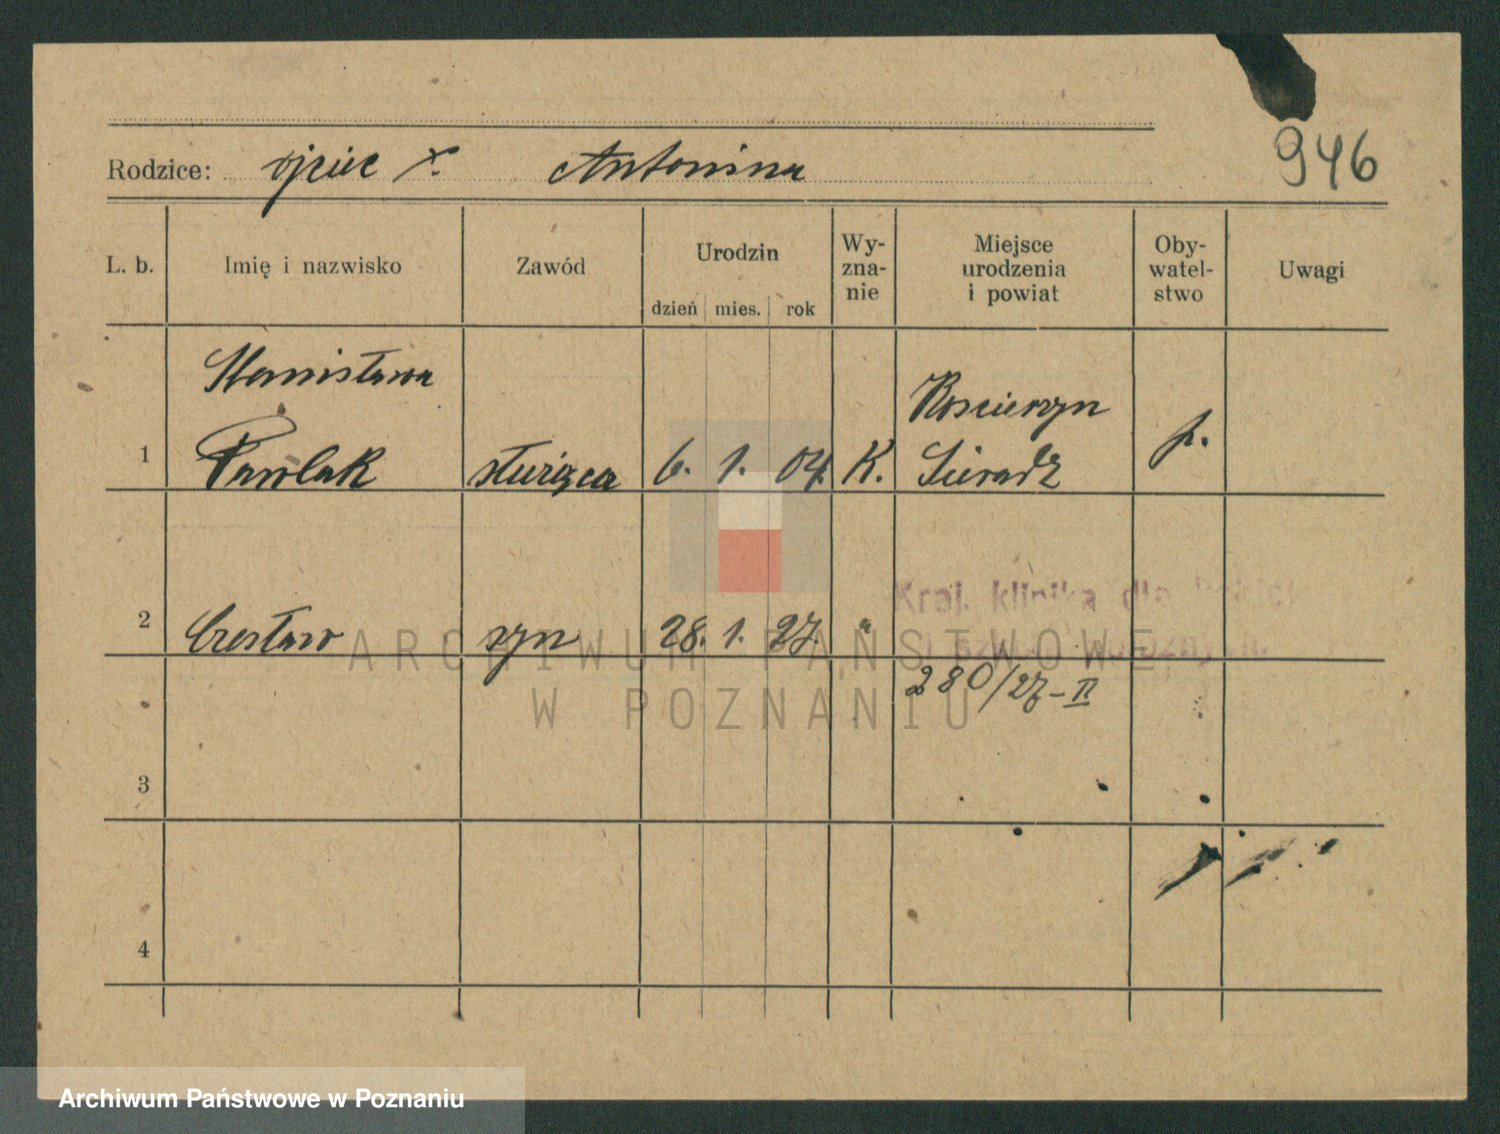 946
Rodzice: ojciec x. Antonina
L. b. Imię i nazwisko Zawód Urodzin dzień mies. rok Wy-zna-nie Miejsce urodzenia i powiat Oby-watel-stwo Uwagi
Stanisława
1 Pawlak służąca 6. 1. 04. K. Sieradz p.
2 Czesław syn 28. 1. 27. " Kraj. klinika dla
280/27-II
3
4
ARCHIWUM PAŃSTWOWE
W POZNANIU
Archiwum Państwowe w Poznaniu